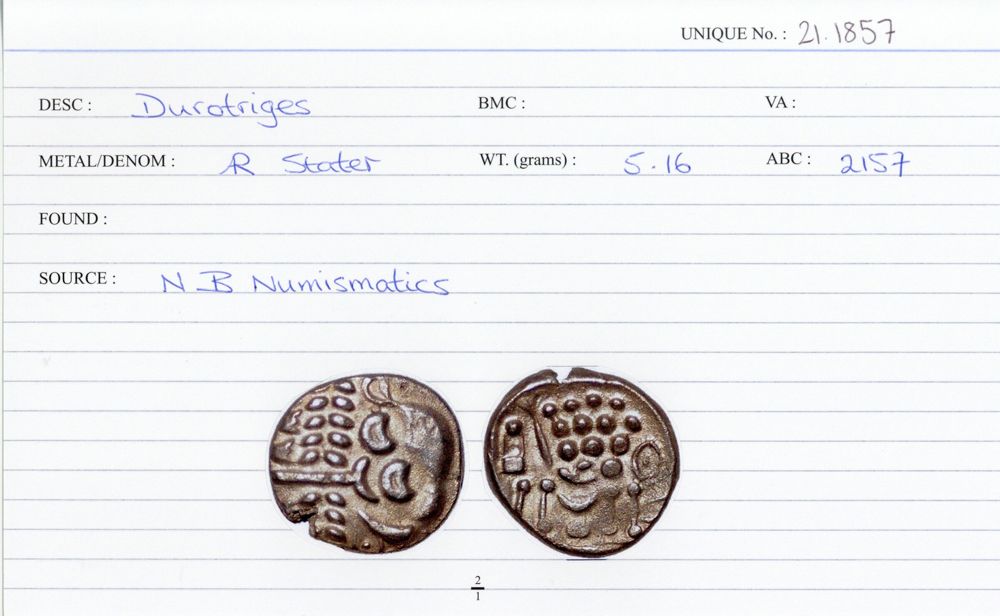 UNIQUE No. : 21.1857
DESC : Durotriges BMC : VA :
METAL/DENOM : R Stater WT. (grams) : 5.16 ABC : 2157
FOUND :
SOURCE : N B Numismatics
2
1